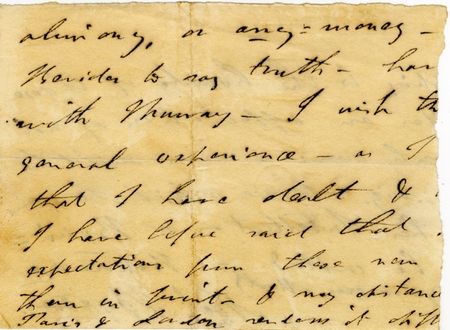 alimony, or any = money -
Besides to say truth - hav
with Murray - I wish th
general experience - as I
that I have dealt &
I have before said that
expectations from these new
them in print - & my distance
Paris & London renders it diff